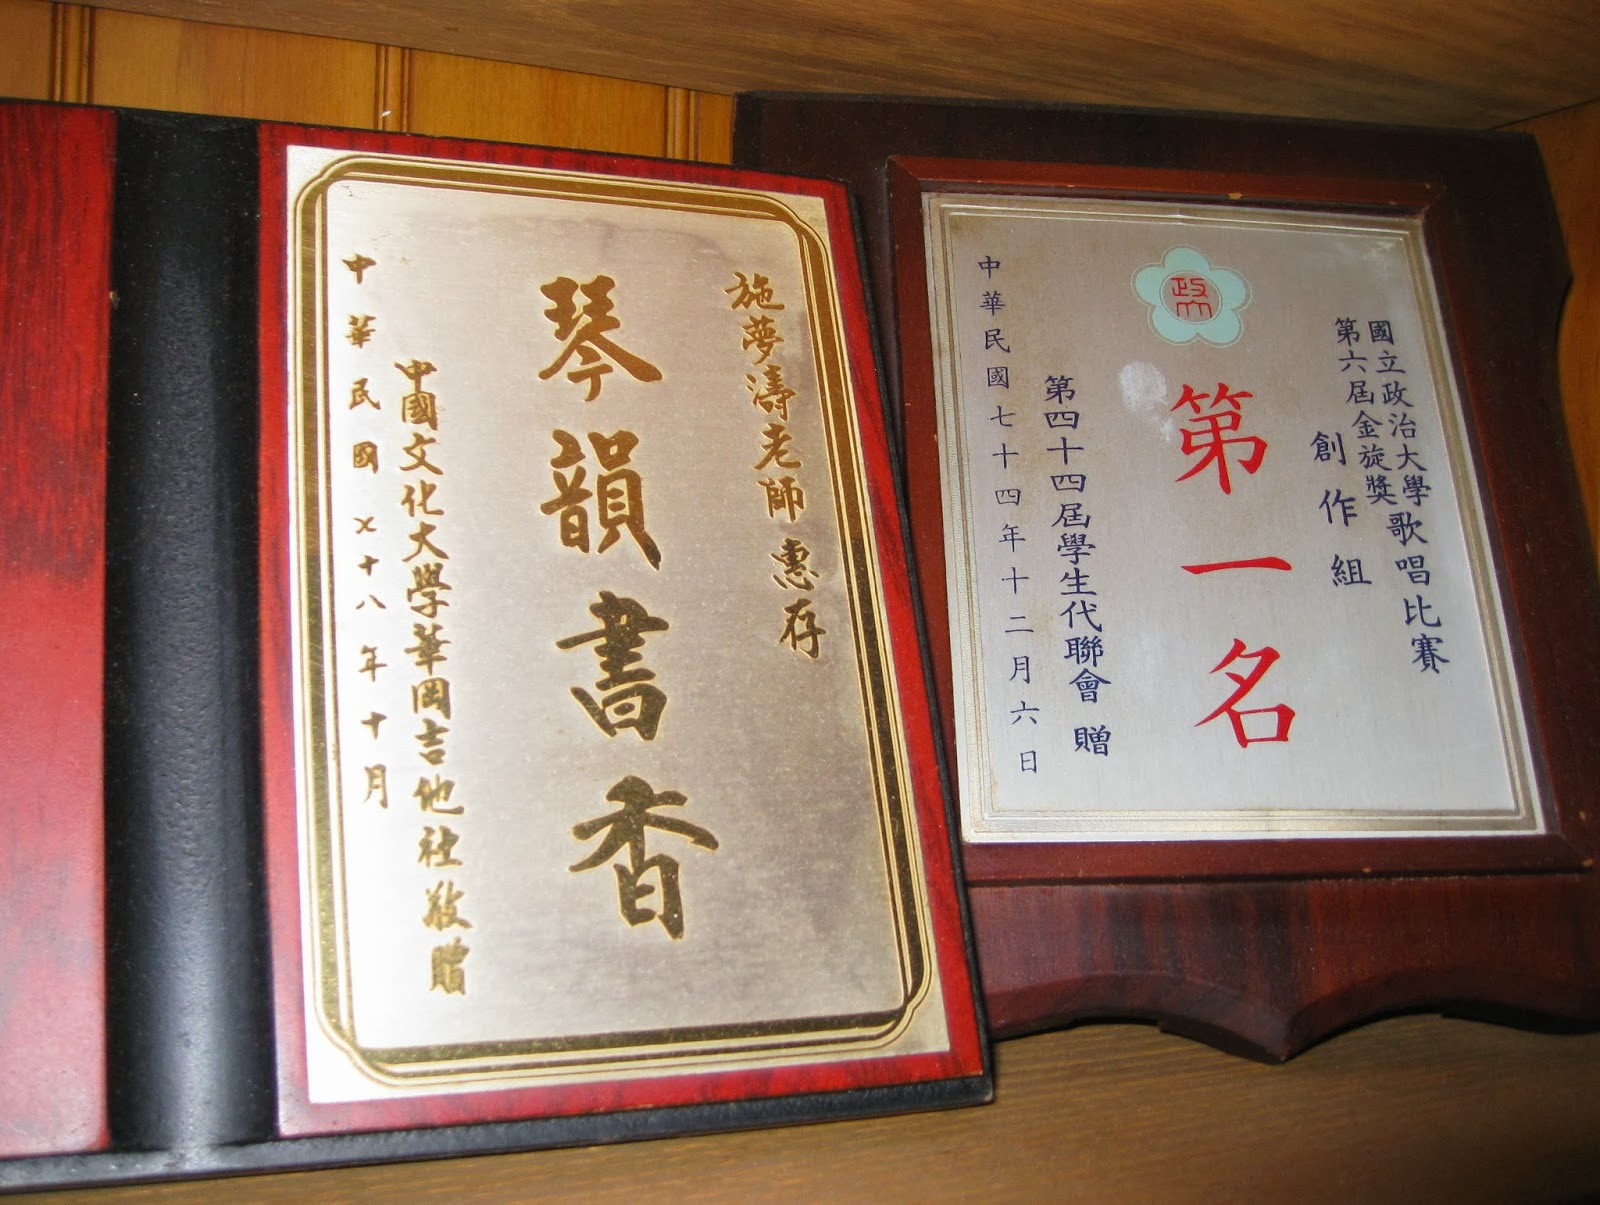 施夢濤老師 惠存
琴韻書香
中國文化大學華岡吉他社敬贈
中華民國七十八年十月
政大
國立政治大學歌唱比賽
第六屆金旋獎
創作組
第一名
第四十四屆學生代聯會 贈
中華民國七十四年十二月六日